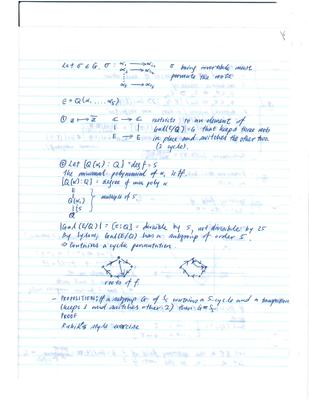 Let σ ∈ G, σ : α₁ → αi₁ σ being invertible must
α₂ → αi₂ permute the roots
⋮
α₅ → αi₅
E = Q(α₁, ..., α₅)
① a ↦ ā C → C restricts to an element of
E | Gal(E/Q) = G that keeps three roots
E → E in place and switches the other two
(2 cycle).
② Let [Q(α₁) : Q] = deg f = 5
the minimal polynomial of α₁ is f.
[Q(α) : Q] = degree of min poly α
E
| multiple of 5
Q(α₁)
| 5
Q
|Gal(E/Q)| = [E:Q] = divisible by 5, not divisible by 25
By Sylow, Gal(E/Q) has a subgroup of order 5
⇒ contains a cyclic permutation
roots of f
– PROPOSITION: If a subgroup G of S₅ contains a 5-cycle and a transposition
(keeps 3 and switches other 2) then G = S₅
PROOF
Rubik's style exercise